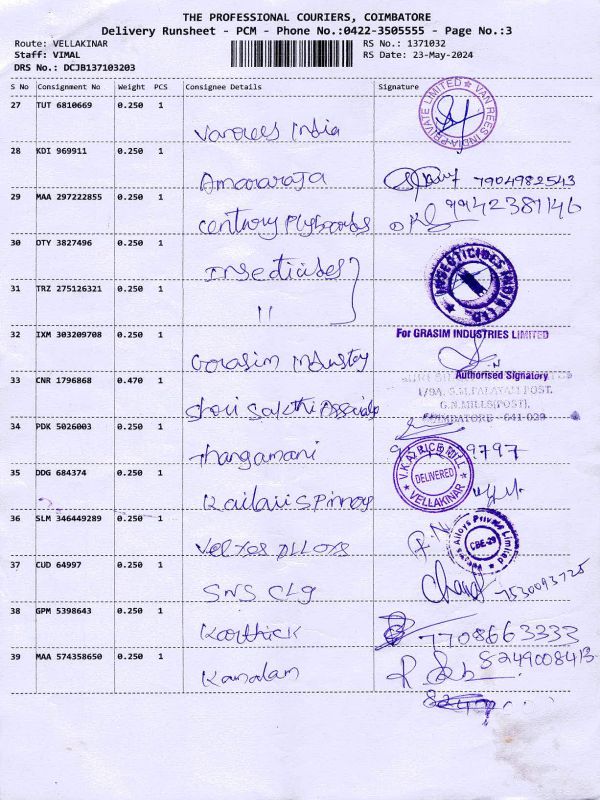 THE PROFESSIONAL COURIERS, COIMBATORE
Delivery Runsheet - PCM - Phone No.:0422-3505555 - Page No.:3
Route: VELLAKINAR RS No.: 1371032
Staff: VIMAL RS Date: 23-May-2024
DRS No.: DCJB137103203
S No Consignment No Weight PCS Consignee Details Signature
27 TUT 6810669 0.250 1
VAN REES INDIA PRIVATE LIMITED
Vanrees India
28 KDI 969911 0.250 1
Amararaja 7904982543
29 MAA 297222855 0.250 1
Century Plyboards 9942381146
30 OTY 3827496 0.250 1
Insecticides
INSECTICIDES INDIA LTD.
31 TRZ 275126321 0.250 1
11
32 IXM 303209708 0.250 1
For GRASIM INDUSTRIES LIMITED
Grasim Industry
Authorised Signatory
33 CNR 1796868 0.470 1
1/9A, S.M.PALAYAM POST,
G.N.MILLS(POST),
COIMBATORE - 641 029
Shri Sakthi
34 PDK 5026003 0.250 1
Thangamani 9797
35 DDG 684374 0.250 1
RICE MILL
DELIVERED
VELLAKINAR
Kailaii Spinng
36 SLM 346449289 0.250 1
Alloys Private Limited
CBE-29
Velxos Alloys
37 CUD 64997 0.250 1
SNS CLG 7530093725
38 GPM 5398643 0.250 1
Karthick 7708663333
39 MAA 574358650 0.250 1
Kanadam 8249008413